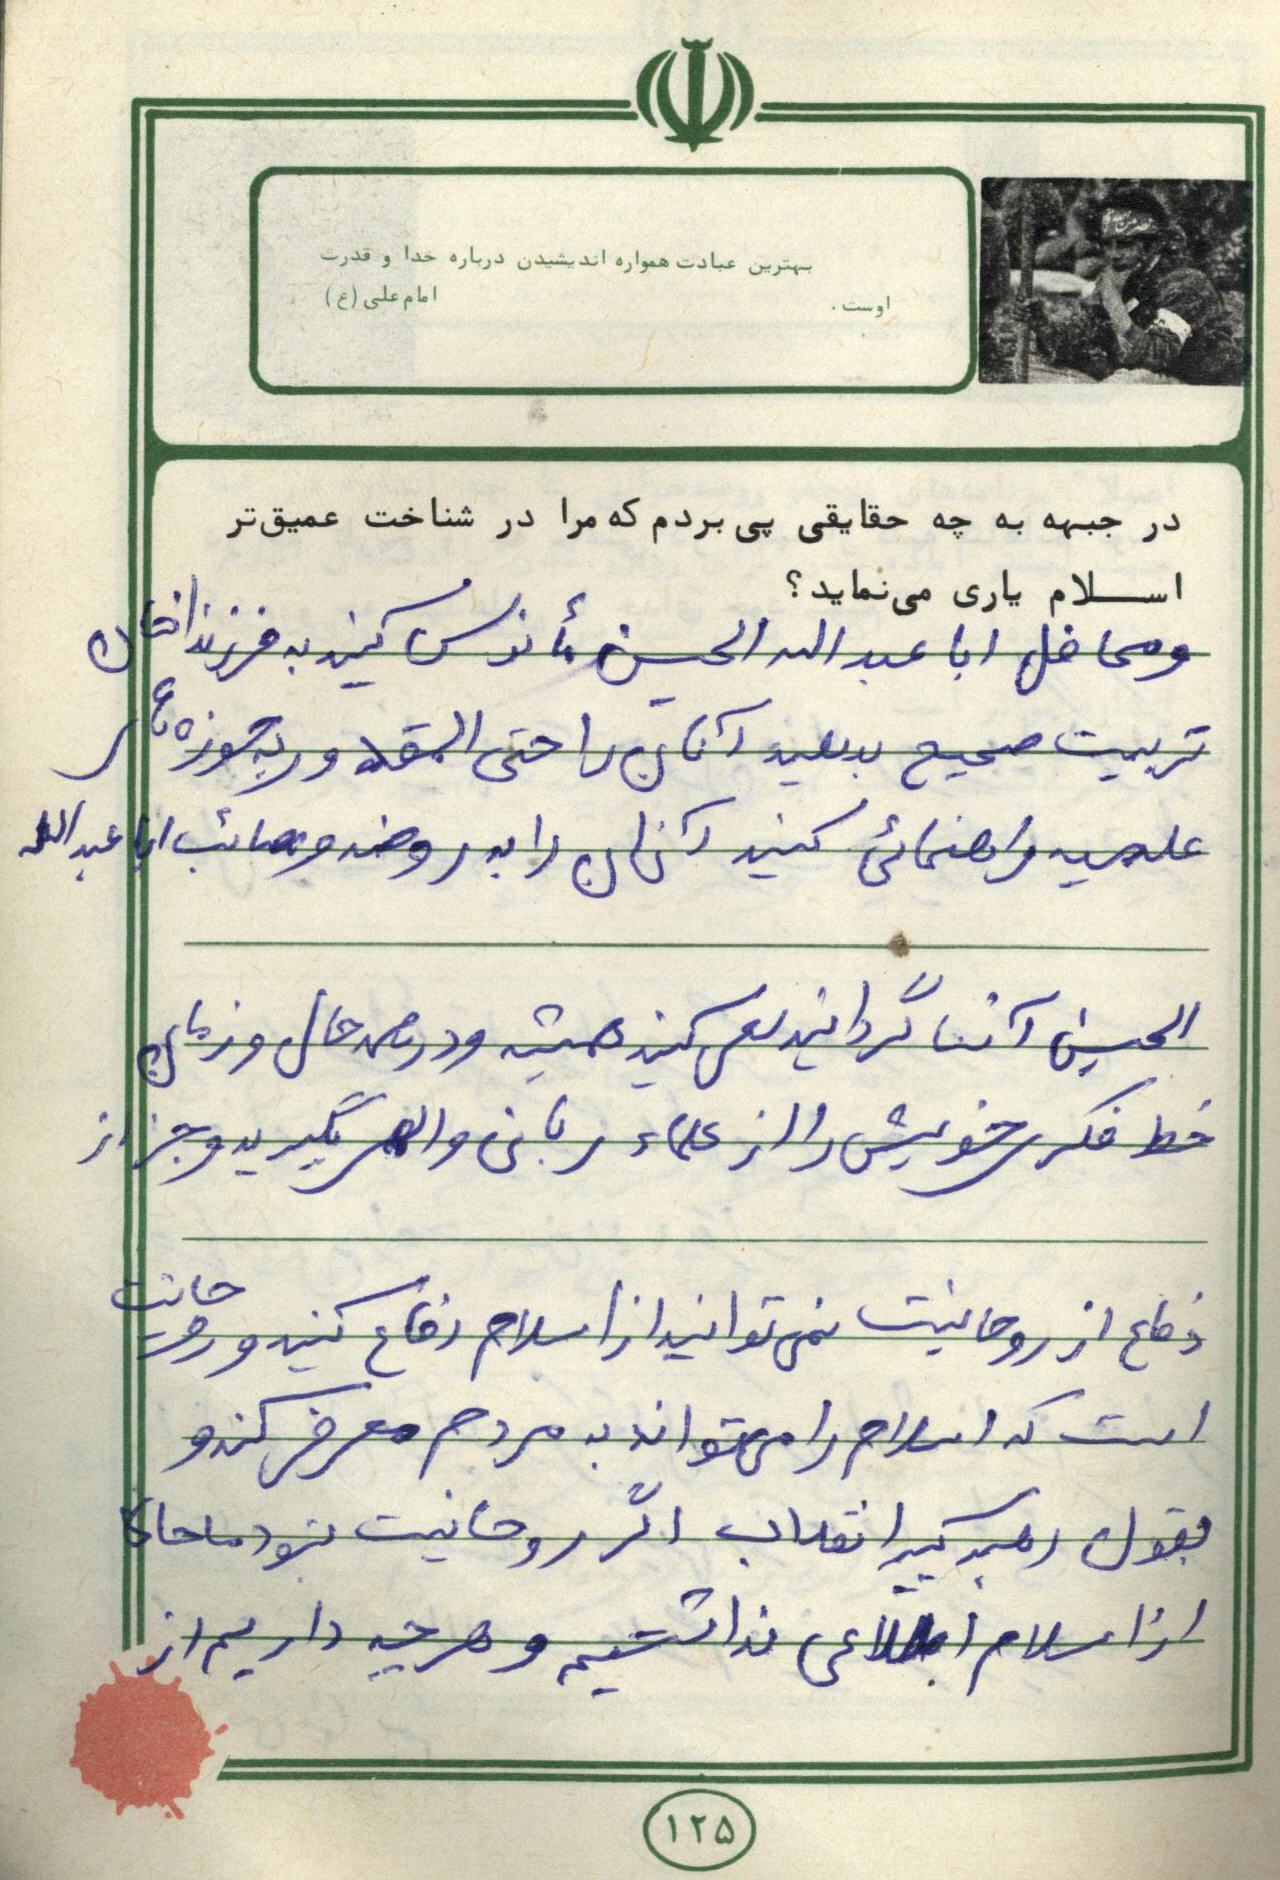 بهترین عبادت همواره اندیشیدن درباره خدا و قدرت
اوست. امام علی (ع)
در جبهه به چه حقایقی پی بردم که مرا در شناخت عمیق‌تر
اسلام یاری می‌نماید؟
ومحافل ابا عبدالله الحسین مأنوس کنید به فرزندانتان
تربیت صحیح بدهید آنان را حتی المقدور به حوزه های
علمیه راهنمائی کنید آنان را به روضه و مصائب ابا عبدالله
الحسین آشنا گردانید سعی کنید همیشه ودر همه حال و زمان
خط فکری خویش را از علماء ربانی والهی بگیرید و جز از
دفاع از روحانیت نمی توانید از اسلام دفاع کنید و روحانیت
است که اسلام را می تواند به مردم معرفی کند و
بقول رهبر کبیر انقلاب اگر روحانیت نبود ما حالا
از اسلام اطلاعی نداشتیم و هرچیه داریم از
۱۲۵